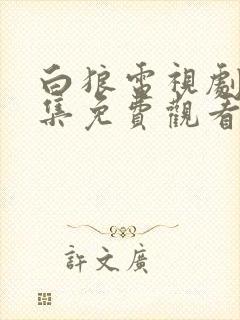 白狼電視劇
集免費觀看
許文廣